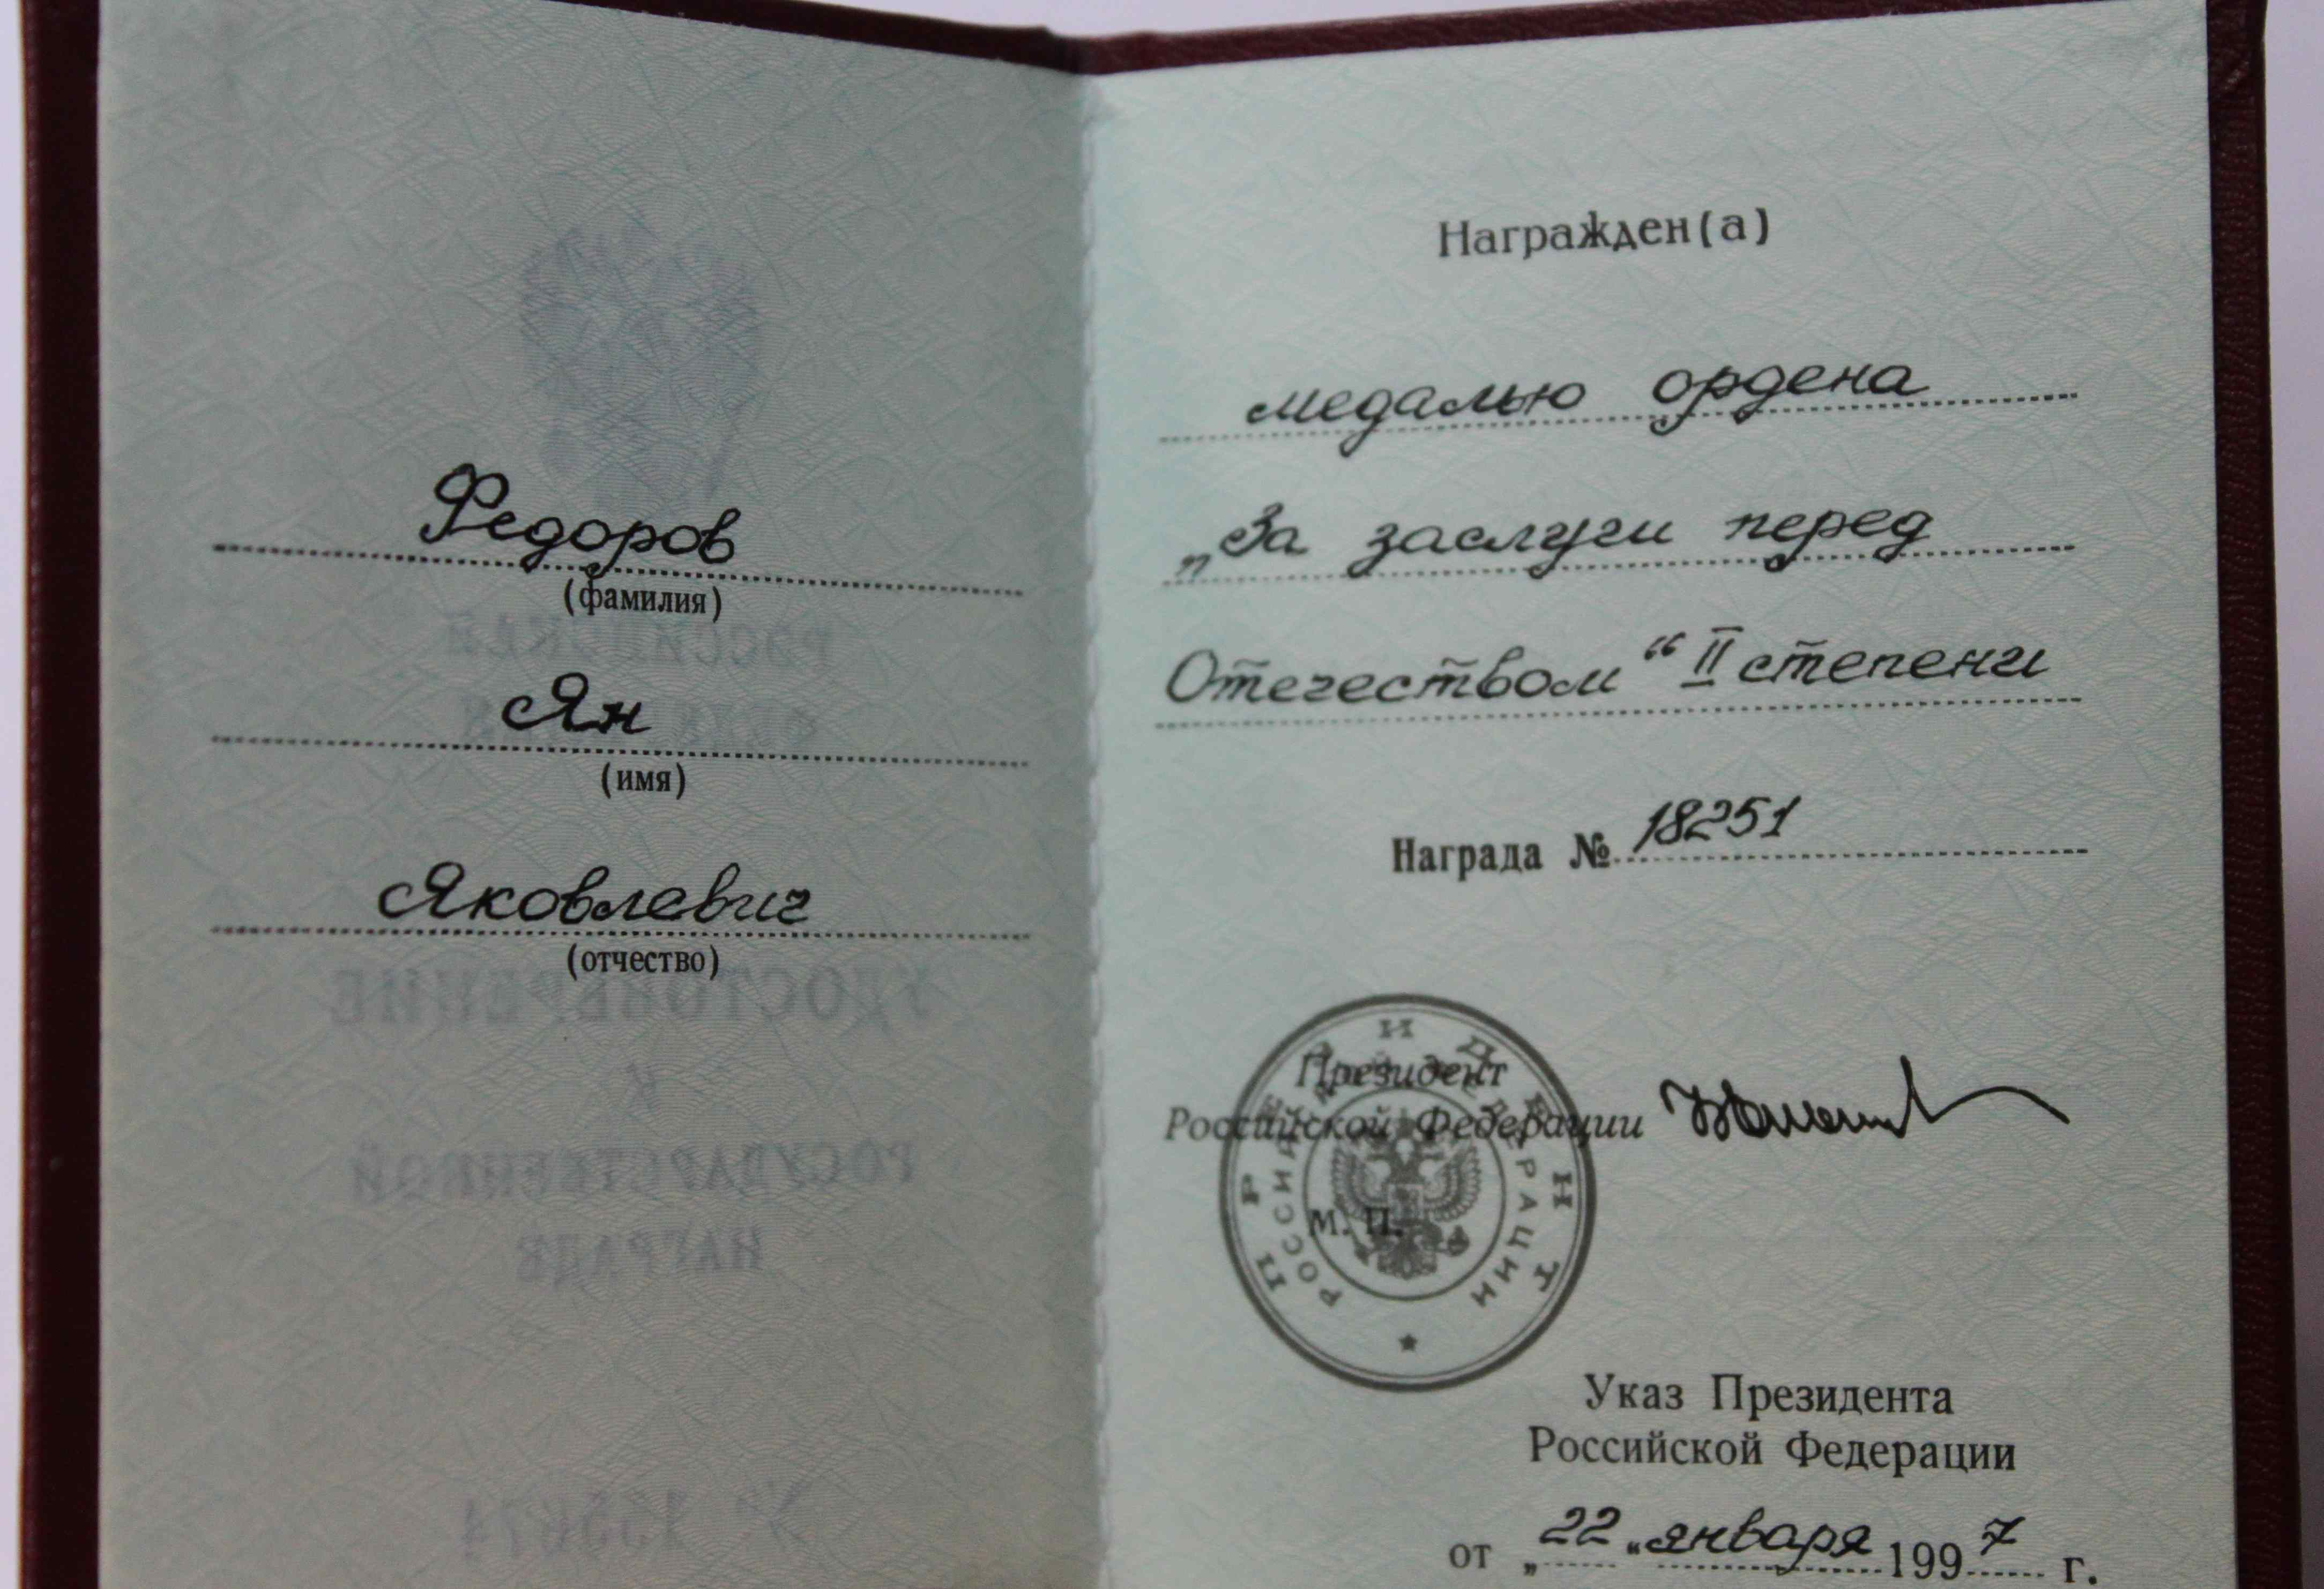 Федоров
(фамилия)
Ян
(имя)
Яковлевич
(отчество)
РОССИЙСКАЯ
УДОСТОВЕРЕНИЕ
К
ГОСУДАРСТВЕННОЙ
НАГРАДЕ
Награжден(а)
медалью ордена
„За заслуги перед
Отечеством“ II степени
Награда № 18251
Президент
Российской Федерации
М. П.
ПРЕЗИДЕНТ
РОССИЙСКОЙ ФЕДЕРАЦИИ
Указ Президента
Российской Федерации
от „22“ января 1997 г.